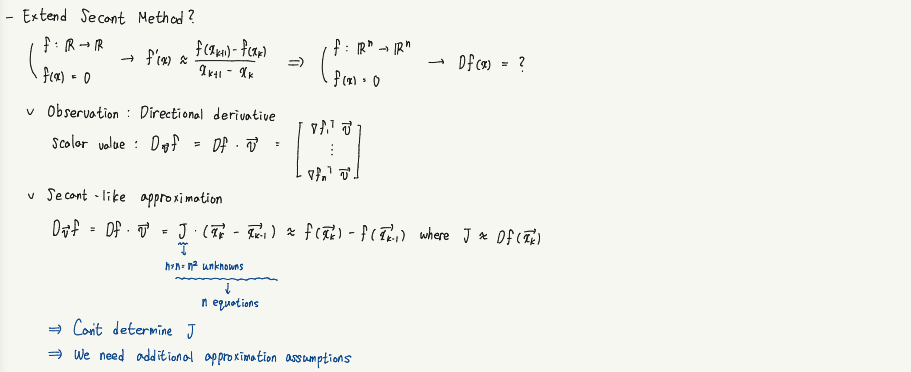 - Extend Secant Method?
( f : ℝ → ℝ
f(x) = 0 → f'(x) ≈ (f(x_{k+1}) - f(x_k)) / (x_{k+1} - x_k) ⇒ ( f : ℝⁿ → ℝⁿ
f(x) = 0 → Df(x) = ?
v Observation : Directional derivative
Scalar value : D_{v⃗}f = Df · v⃗ = [ ∇f₁ᵀ v⃗ ⋮ ∇fₙᵀ v⃗ ]
v Secant-like approximation
D_{v⃗}f = Df · v⃗ = J · (x⃗_k - x⃗_{k-1}) ≈ f(x⃗_k) - f(x⃗_{k-1}) where J ≈ Df(x⃗_k)
↓
n×n = n² unknowns
↓
n equations
⇒ Can't determine J
⇒ We need additional approximation assumptions